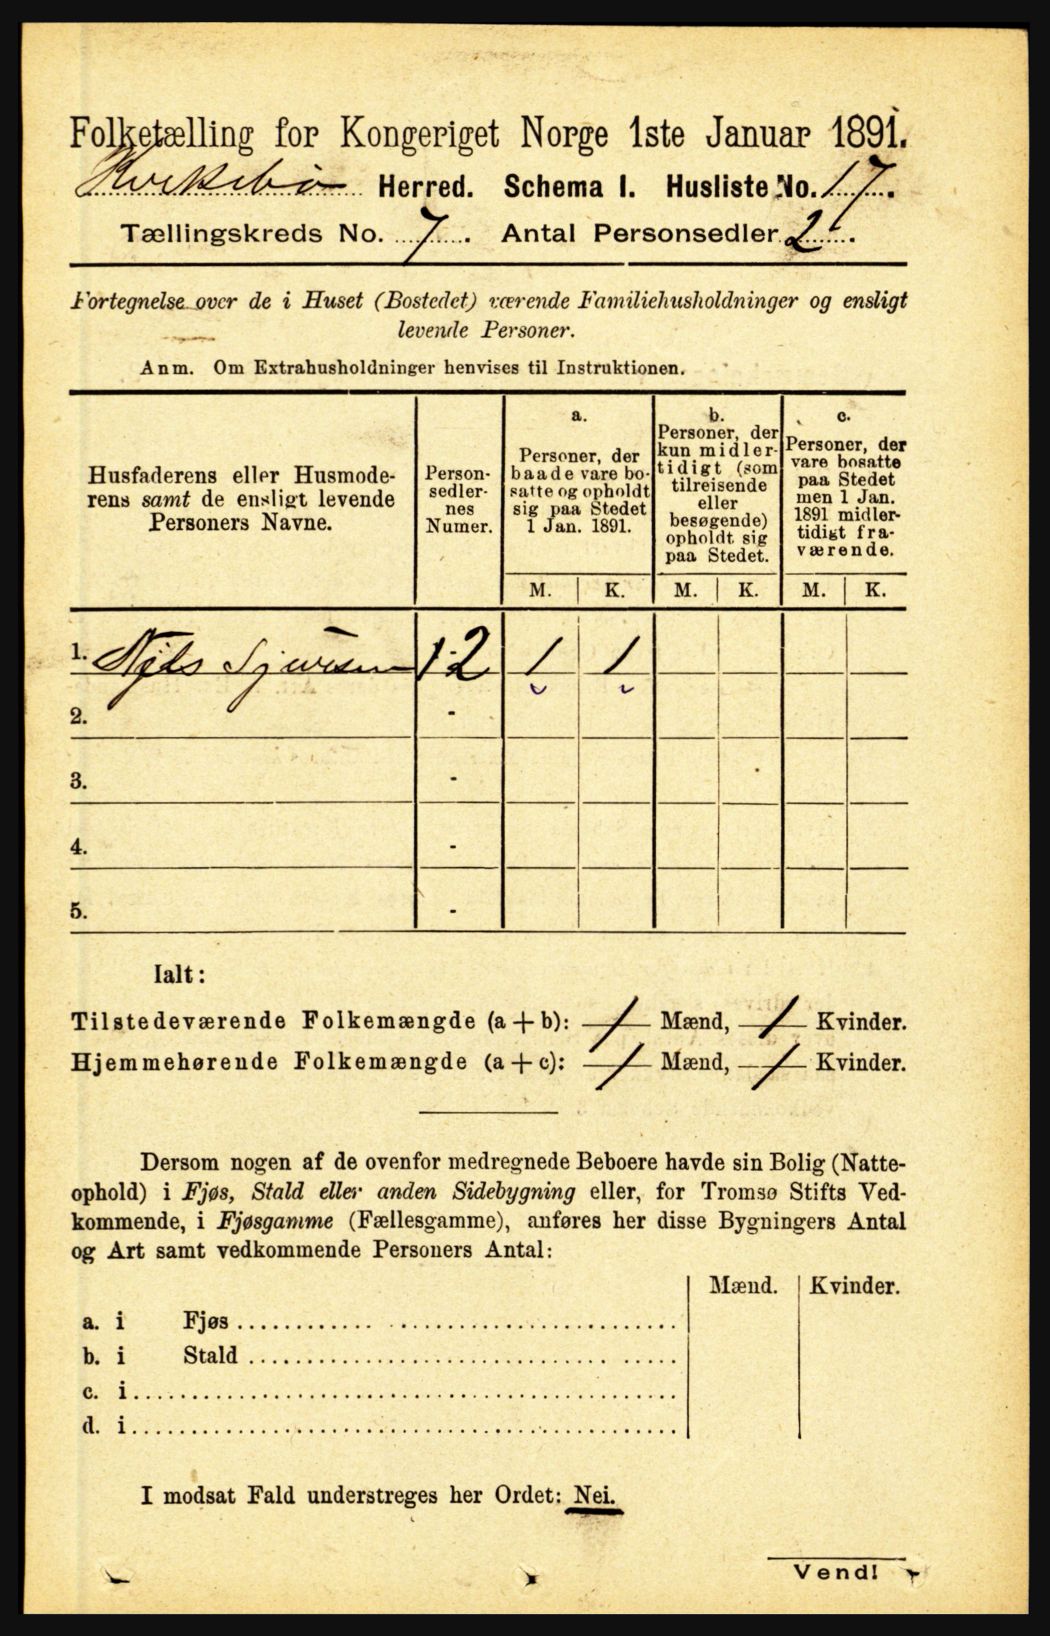 Folketælling for Kongeriget Norge 1ste Januar 1891.
Herred. Schema I. Husliste No. 17.
Tællingskreds No. 7. Antal Personsedler 2.
Fortegnelse over de i Huset (Bostedet) værende Familiehusholdninger og ensligt
levende Personer.
Anm. Om Extrahusholdninger henvises til Instruktionen.
Husfaderens eller Husmode-
rens samt de ensligt levende
Personers Navne.
Person-
sedler-
nes
Numer.
a.
Personer, der
baade vare bo-
satte og opholdt
sig paa Stedet
1 Jan. 1891.
b.
Personer, der
kun midler-
tidigt (som
tilreisende
eller
besøgende)
opholdt sig
paa Stedet.
c.
Personer, der
vare bosatte
paa Stedet
men 1 Jan.
1891 midler-
tidigt fra-
værende.
M. K. M. K. M. K.
1. Nils 1-2 1 1
2. -
3. -
4. -
5. -
Ialt:
Tilstedeværende Folkemængde (a + b): 1 Mænd, 1 Kvinder.
Hjemmehørende Folkemængde (a + c): 1 Mænd, 1 Kvinder.
Dersom nogen af de ovenfor medregnede Beboere havde sin Bolig (Natte-
ophold) i Fjøs, Stald eller anden Sidebygning eller, for Tromsø Stifts Ved-
kommende, i Fjøsgamme (Fællesgamme), anføres her disse Bygningers Antal
og Art samt vedkommende Personers Antal:
Mænd. Kvinder.
a. i Fjøs
b. i Stald
c. i
d. i
I modsat Fald understreges her Ordet: Nei.
Vend!